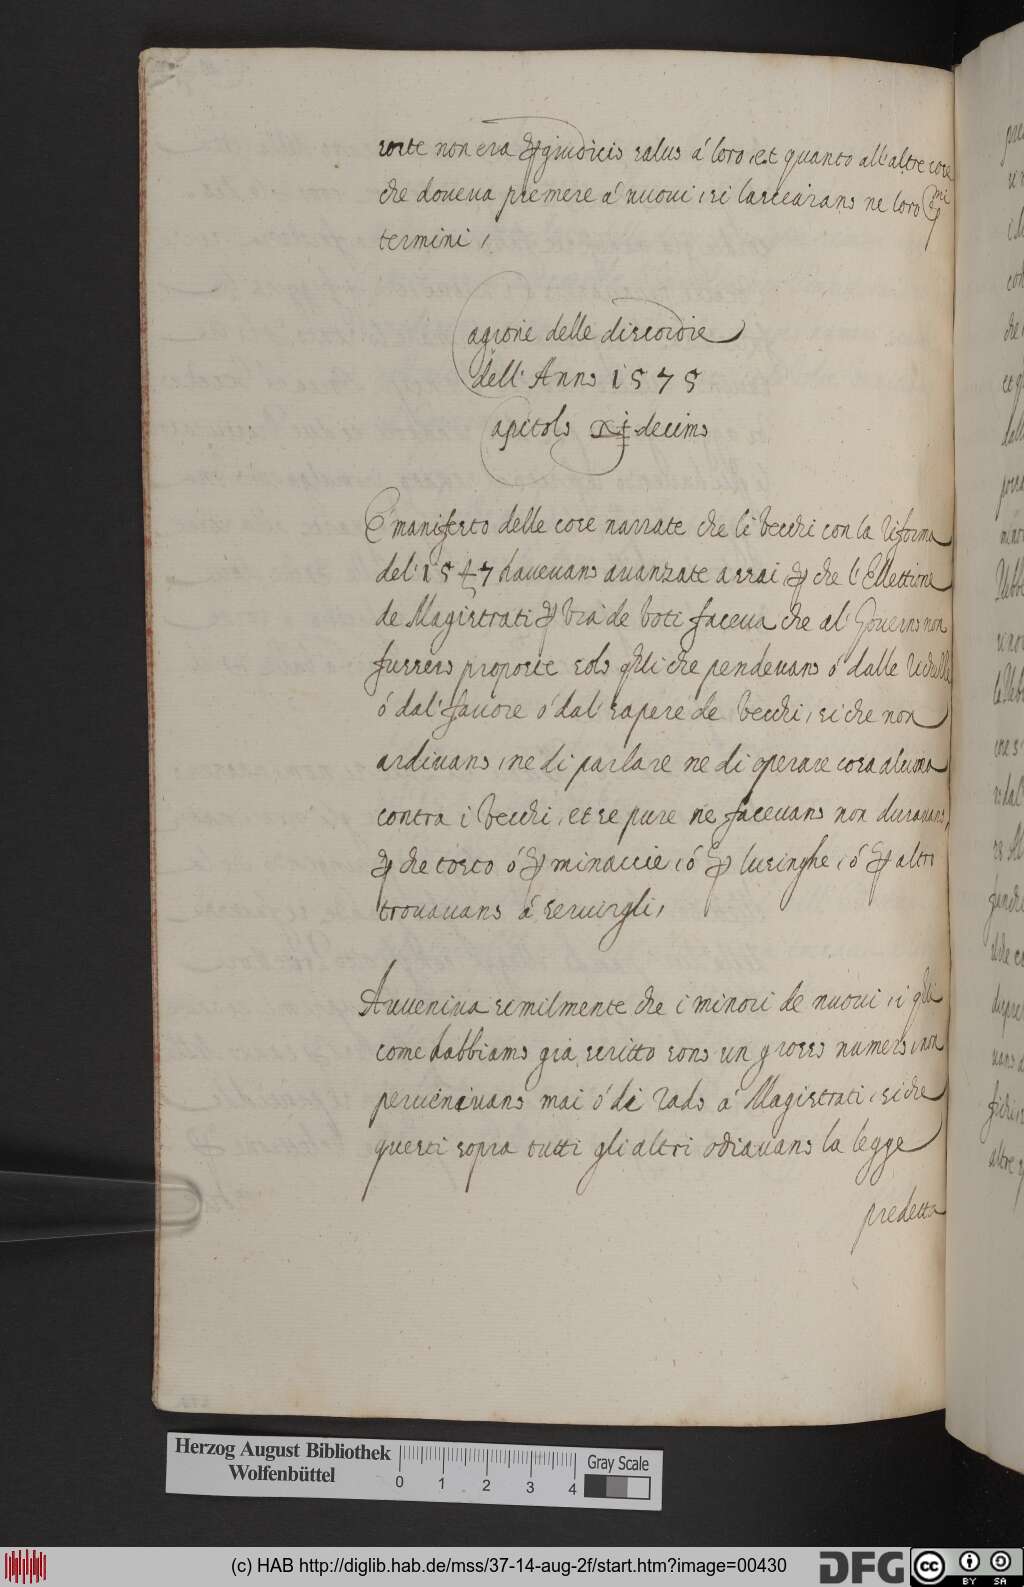 sorte non era ꝑgiudicio salvo á loro, et quanto all'altre cose
che doveva premere á nuovi, si lasciarano ne loro ꝑmi
termini,
Cagione delle discordie
dell' Anno 1575
Capitolo Xi decimo
É manifesto delle cose narrate che li vecchi con la Riforma
del' 1547 havevano avanzate assai, ꝑ che l'Ellettione
de Magistrati ꝑ via de voti faceva che al' Governo non
fussero proposte solo qlli che pendevano ó dalle Richelle
ó dal' favore ó dal' sapere de vecchi, si che non
ardivano, ne di parlare ne di operare cosa alcuna
contra i vecchi, et se pure ne facevano non duravano,
ꝑ che tosto ó ꝑ minaccie, ó ꝑ lusinghe, ó ꝑ altro
trovavano á servirgli,
Avveniva similmente che i minori de nuovi, i qli
come habbiamo giá scritto sono un grosso numero, non
pervenivano mai ó di rado á Magistrati, si che
questi sopra tutti gli altri odiavano la legge
predetta
Herzog August Bibliothek
Wolfenbüttel
0 1 2 3 4
Gray Scale
(c) HAB http://diglib.hab.de/mss/37-14-aug-2f/start.htm?image=00430
DFG
cc BY SA